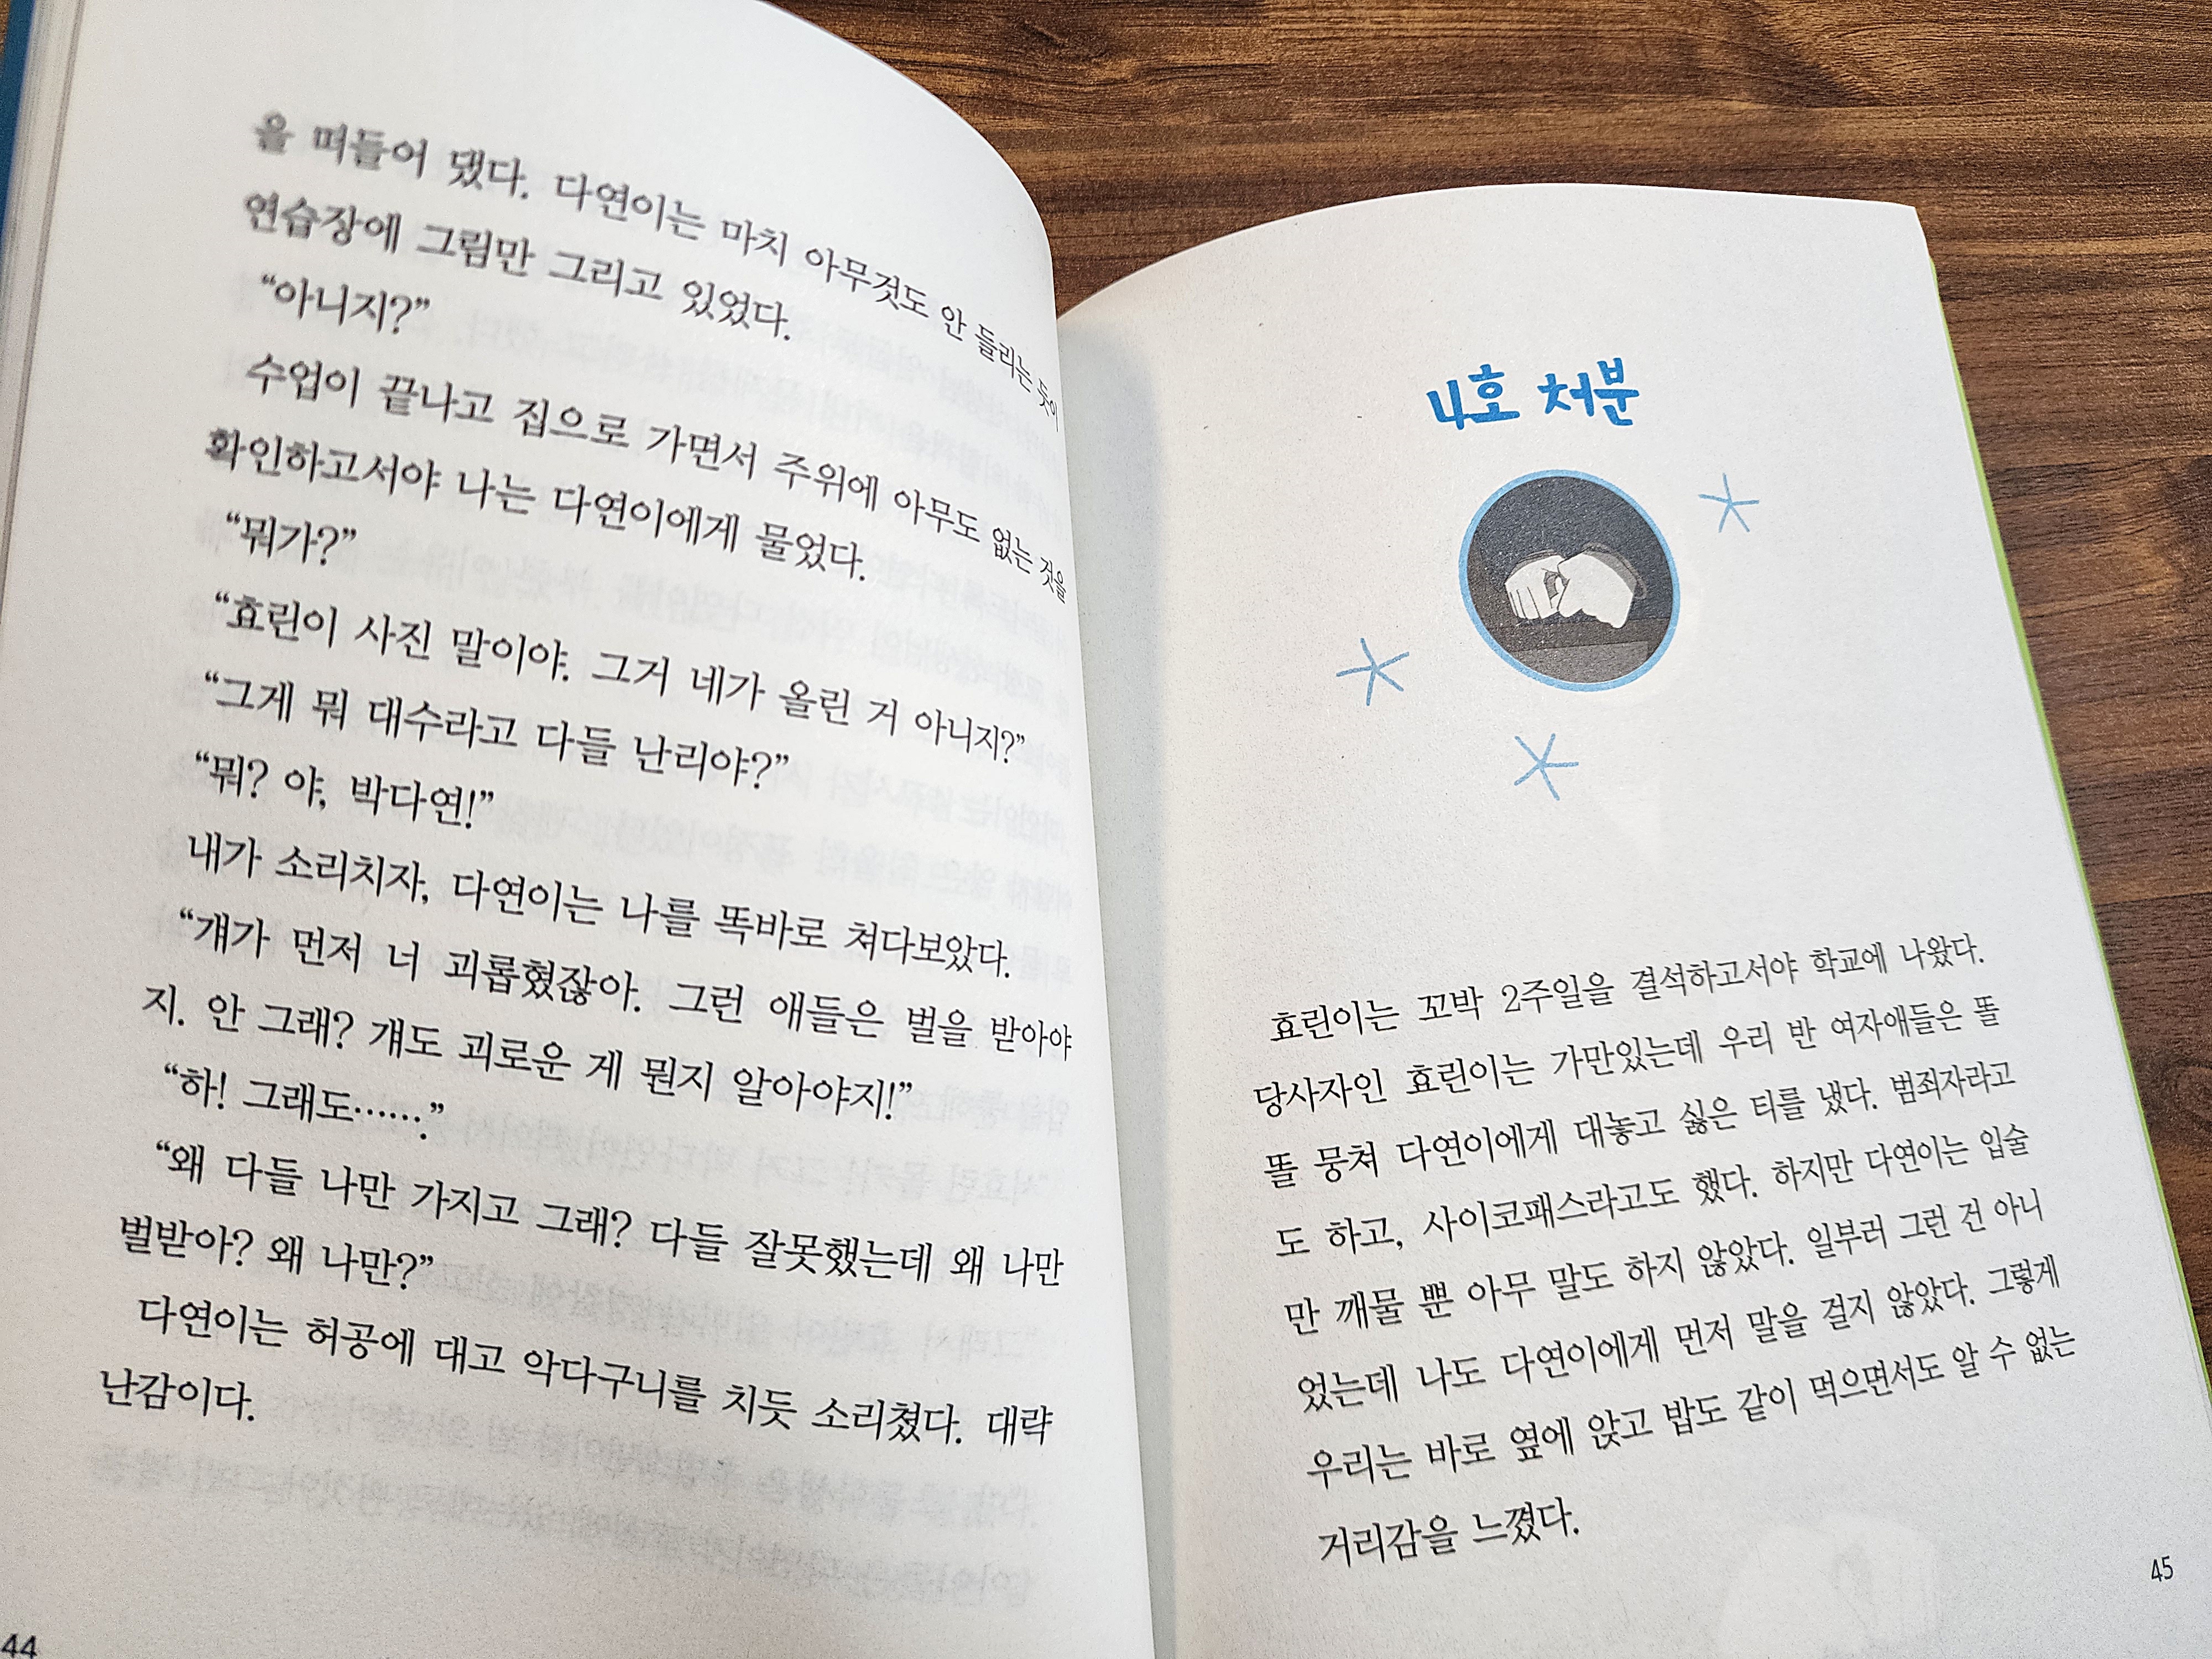 을 떠들어 댔다. 다연이는 마치 아무것도 안 들리는 듯이
연습장에 그림만 그리고 있었다.
“아니지?”
수업이 끝나고 집으로 가면서 주위에 아무도 없는 것을
확인하고서야 나는 다연이에게 물었다.
“뭐가?”
“효린이 사진 말이야. 그거 네가 올린 거 아니지?”
“그게 뭐 대수라고 다들 난리야?”
“뭐? 야, 박다연!”
내가 소리치자, 다연이는 나를 똑바로 쳐다보았다.
“걔가 먼저 너 괴롭혔잖아. 그런 애들은 벌을 받아야
지. 안 그래? 걔도 괴로운 게 뭔지 알아야지!”
“하! 그래도…….”
“왜 다들 나만 가지고 그래? 다들 잘못했는데 왜 나만
벌받아? 왜 나만?”
다연이는 허공에 대고 악다구니를 치듯 소리쳤다. 대략
난감이다.
44
4호 처분
효린이는 꼬박 2주일을 결석하고서야 학교에 나왔다.
당사자인 효린이는 가만있는데 우리 반 여자애들은 똘
똘 뭉쳐 다연이에게 대놓고 싫은 티를 냈다. 범죄자라고
도 하고, 사이코패스라고도 했다. 하지만 다연이는 입술
만 깨물 뿐 아무 말도 하지 않았다. 일부러 그런 건 아니
었는데 나도 다연이에게 먼저 말을 걸지 않았다. 그렇게
우리는 바로 옆에 앉고 밥도 같이 먹으면서도 알 수 없는
거리감을 느꼈다.
45